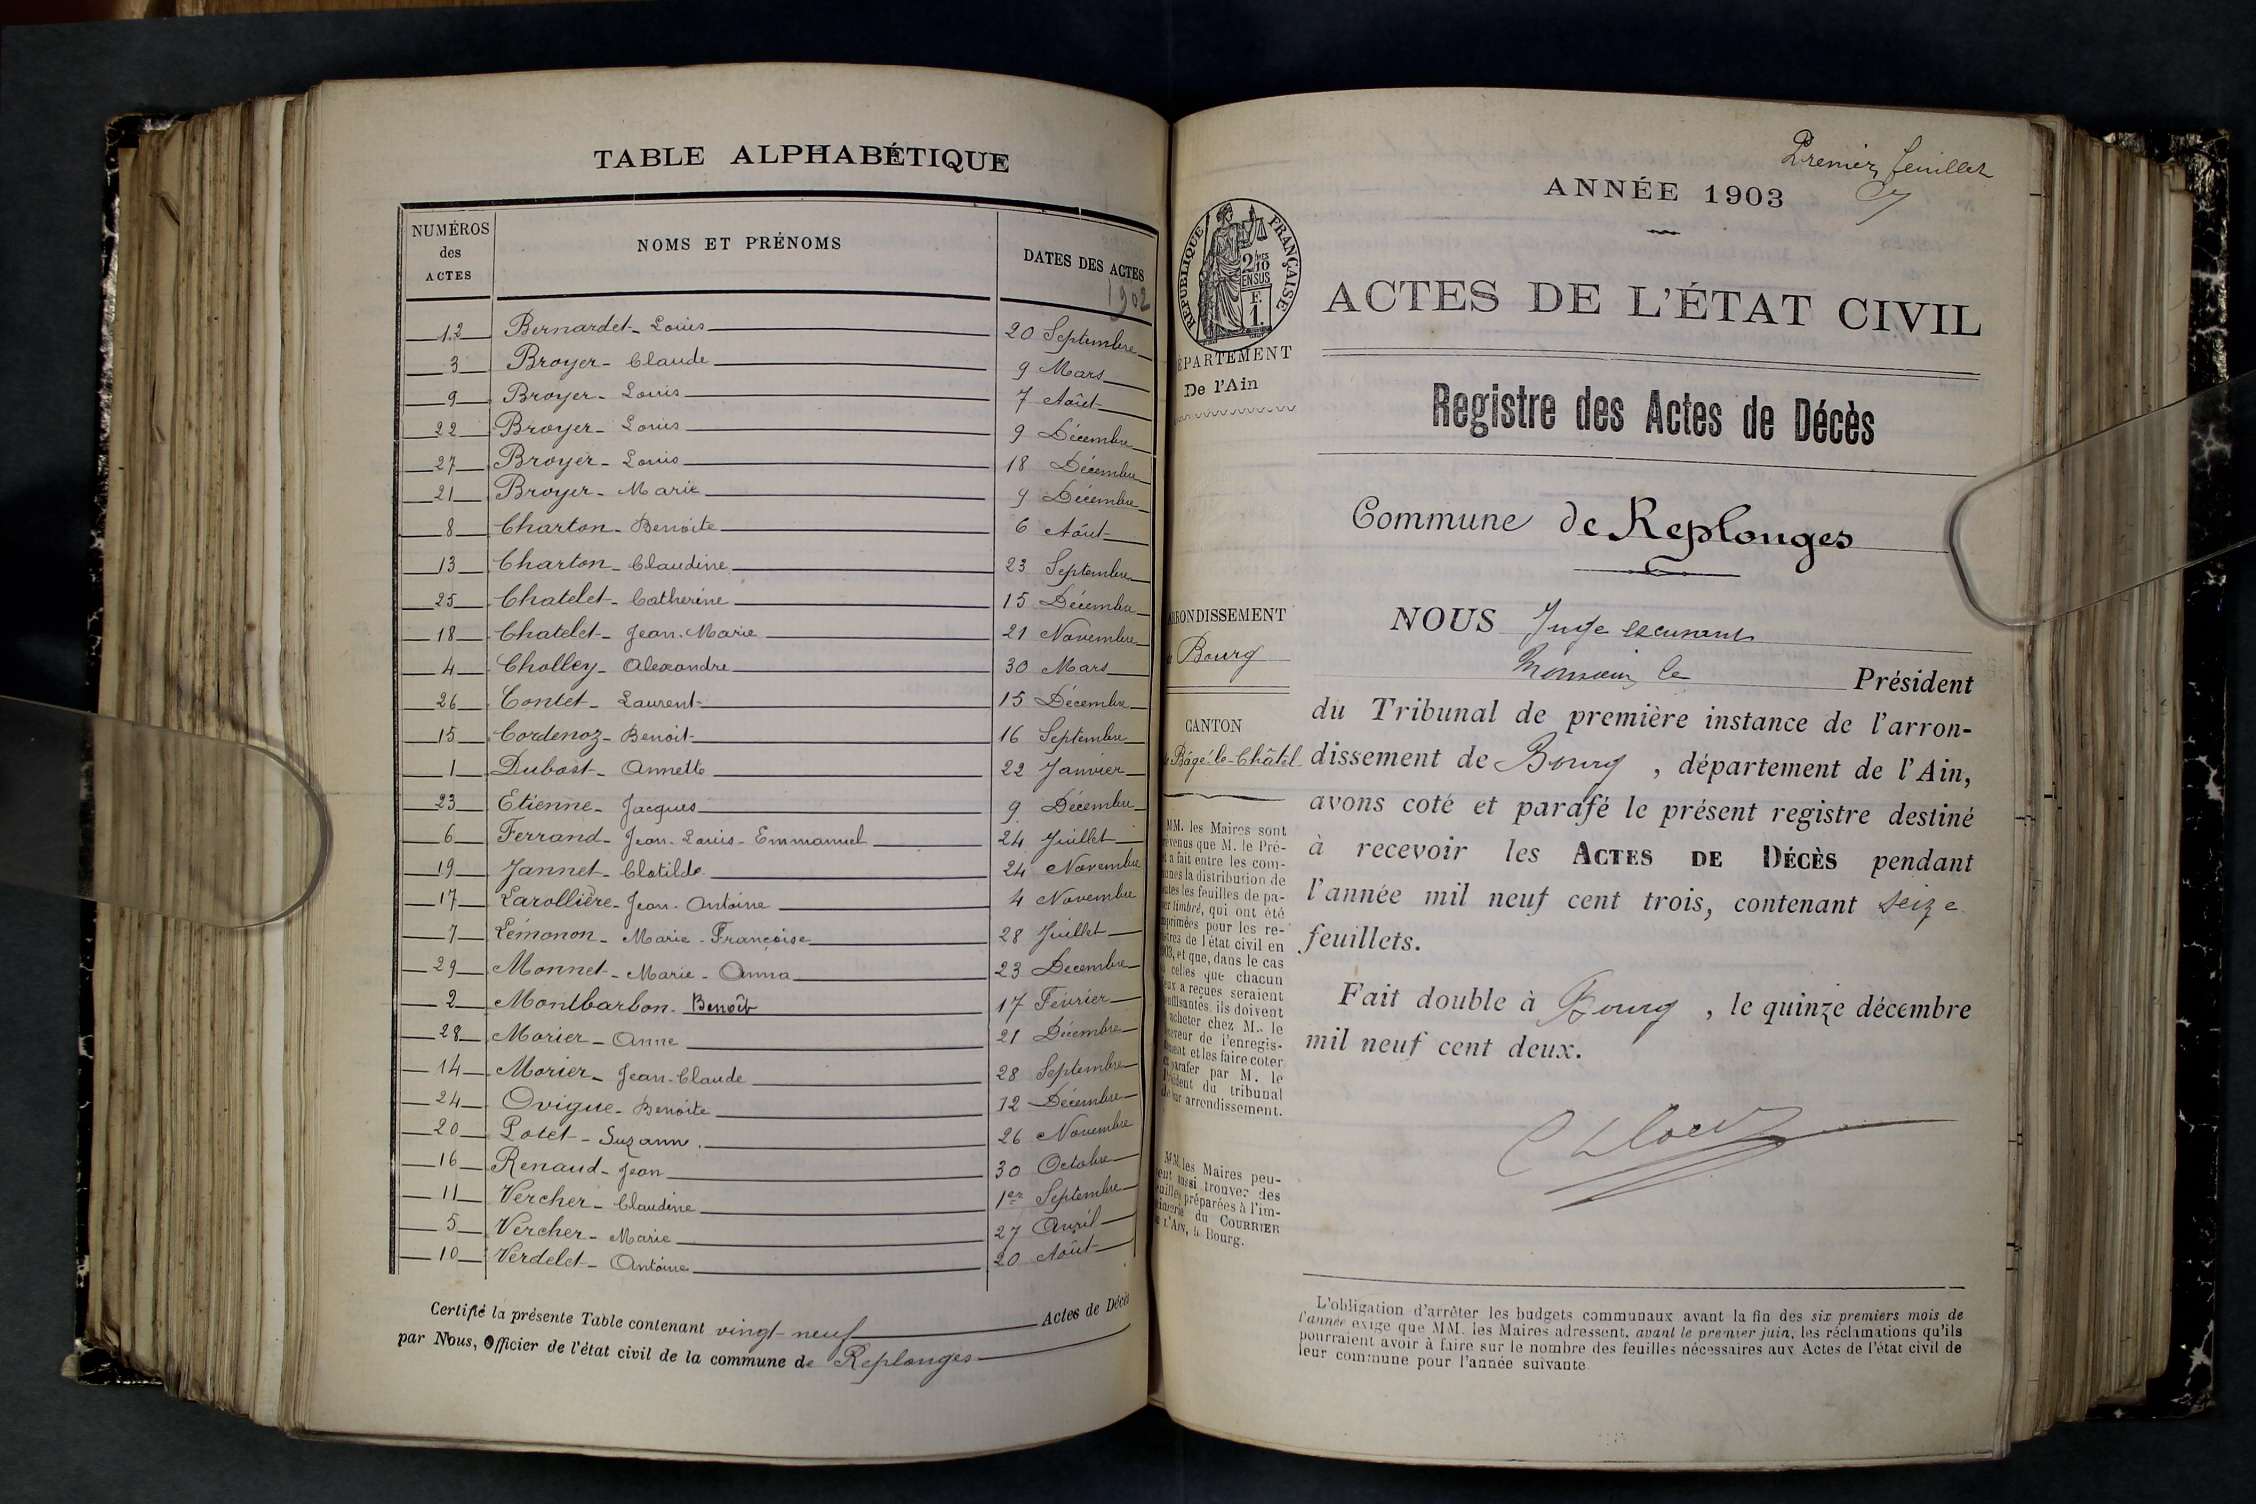 TABLE ALPHABÉTIQUE
NUMÉROS des ACTES NOMS ET PRÉNOMS DATES DES ACTES
1902
12 Bernardet - Louis 20 Septembre
3 Broyer - Claude 9 Mars
9 Broyer - Louis 7 Août
22 Broyer - Louis 9 Décembre
27 Broyer - Louis 18 Décembre
21 Broyer - Marie 9 Décembre
8 Charton - Benoite 6 Août
13 Charton - Claudine 23 Septembre
25 Chatelet - Catherine 15 Décembre
18 Chatelet - Jean-Marie 21 Novembre
4 Cholley - Alexandre 30 Mars
26 Contet - Laurent 15 Décembre
15 Cordenoz - Benoit 16 Septembre
1 Dubost - Annette 22 Janvier
23 Etienne - Jacques 9 Décembre
6 Ferrand - Jean-Louis-Emmanuel 24 Juillet
19 Jannet - Clotilde 24 Novembre
17 Larollière - Jean-Antoine 4 Novembre
7 Lémonon - Marie-Françoise 28 Juillet
29 Monnet - Marie-Anna 23 Décembre
2 Montbarbon - Benoît 17 Février
28 Morier - Anne 21 Décembre
14 Morier - Jean-Claude 28 Septembre
24 Ovigue - Benoite 12 Décembre
20 Potet - Suzanne 26 Novembre
16 Renaud - Jean 30 Octobre
11 Vercher - Claudine 1er Septembre
5 Vercher - Marie 27 Avril
10 Verdelet - Antoine 20 Août
Certifié la présente Table contenant vingt-neuf Actes de Décès
par Nous, Officier de l'état civil de la commune de Replonges
Premier feuillet
ANNÉE 1903
RÉPUBLIQUE FRANÇAISE
2/10 EN SUS
F. 1.
DÉPARTEMENT
De l'Ain
ACTES DE L'ÉTAT CIVIL
Registre des Actes de Décès
Commune de Replonges
ARRONDISSEMENT
Bourg
CANTON
Bâgé-le-Châtel
MM. les Maires sont
prévenus que M. le Pré-
fet a fait entre les com-
munes la distribution de
toutes les feuilles de pa-
pier timbré, qui ont été
imprimées pour les re-
gistres de l'état civil en
1903, et que, dans le cas
où celles que chacun
d'eux a reçues seraient
insuffisantes, ils doivent
acheter chez M. le
receveur de l'enregis-
trement et les faire coter
et parafer par M. le
Président du tribunal
de leur arrondissement.
MM. les Maires peu-
vent aussi trouver des
feuilles préparées à l'im-
primerie du COURRIER
DE L'AIN, à Bourg.
NOUS Juge
Monsieur le Président
du Tribunal de première instance de l'arron-
dissement de Bourg, département de l'Ain,
avons coté et parafé le présent registre destiné
à recevoir les ACTES DE DÉCÈS pendant
l'année mil neuf cent trois, contenant seize
feuillets.
Fait double à Bourg, le quinze décembre
mil neuf cent deux.
L'obligation d'arrêter les budgets communaux avant la fin des six premiers mois de
l'année exige que MM. les Maires adressent, avant le premier juin, les réclamations qu'ils
pourraient avoir à faire sur le nombre des feuilles nécessaires aux Actes de l'état civil de
leur commune pour l'année suivante